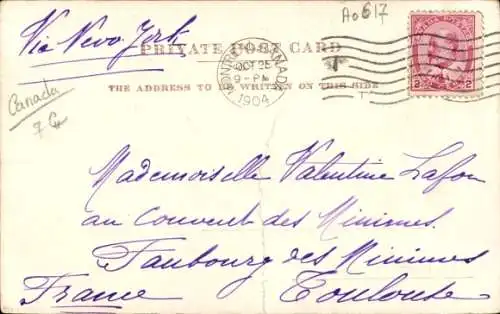 Ao 617
Via New York
PRIVATE POST CARD
MONTREAL CANADA
OCT 25
9-PM
1904
CANADA POSTAGE
2 2
THE ADDRESS TO BE WRITTEN ON THIS SIDE
Canada
Mademoiselle Valentine Lafon
au Couvent des Minimes
Faubourg des Minimes
France Toulouse